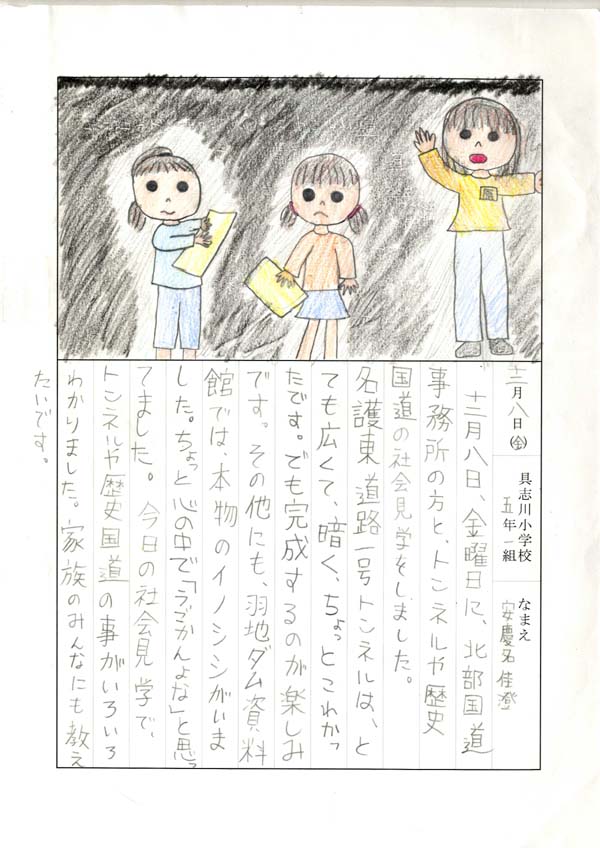 十二月八日(金)
具志川小学校
五年一組
なまえ
安慶名 佳澄
十二月八日、金曜日に、北部国道
事務所の方と、トンネルや歴史
国道の社会見学をしました。
名護東道路一号トンネルは、と
ても広くて、暗く、ちょっとこわかっ
たです。でも完成するのが楽しみ
です。その他にも、羽地ダム資料
館では、本物のイノシシがいま
した。ちょっと心の中で「うごかんよな」と思っ
てました。今日の社会見学で、
トンネルや歴史国道の事がいろいろ
わかりました。家族のみんなにも教え
たいです。